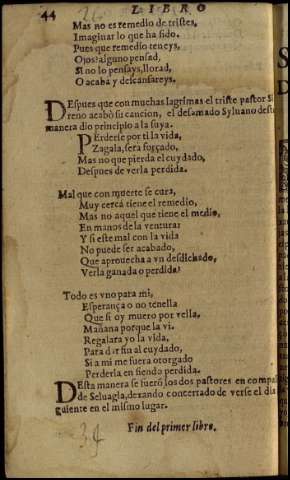 44 LIBRO
Mas no es remedio de tristes,
Imaginar lo que ha sido.
Pues que remedio teneys,
Ojos? alguno pensad,
Si no lo pensays, llorad,
O acabá y descansareys.
DEspues que con muchas lagrimas el triste pastor Si
reno acabò su cancion, el desamado Syluano desta
manera dio principio a la suya.
PErderse por ti la vida,
Zagala, sera forçado,
Mas no que pierda el cuydado,
Despues de verla perdida.
Mal que con muerte se cura,
Muy cerca tiene el remedio,
Mas no aquel que tiene el medio,
En manos de la ventura:
Y si este mal con la vida
No puede ser acabado,
Que aprouecha a vn desdichado,
Verla ganada o perdida?
Todo es vno para mi,
Esperança o no tenella
Que si oy muero por vella,
Mañana porque la vi.
Regalara yo la vida,
Para dar fin al cuydado,
Si a mi me fuera otorgado
Perderla en siendo perdida.
DEsta manera se fuerõ los dos pastores en compañ
de Seluagia, dexando concertado de verse el dia si
guiente en el mismo lugar.
Fin del primer libro.
34